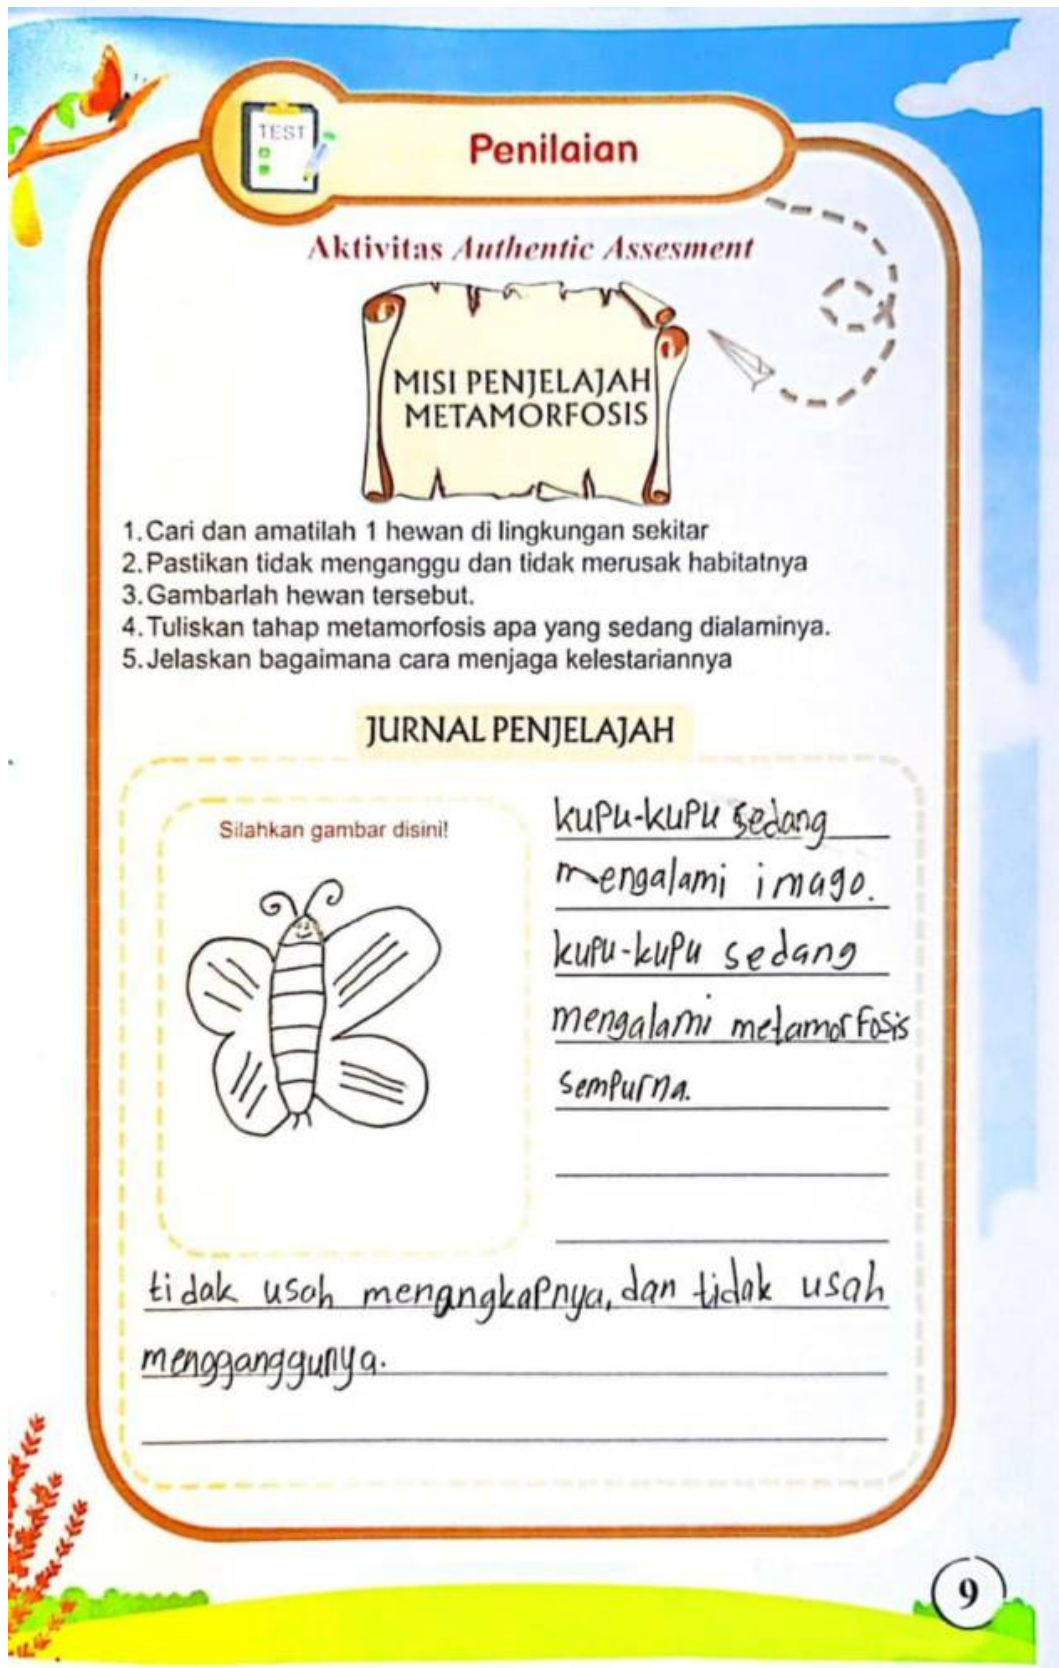 TEST
Penilaian
Aktivitas Authentic Assesment
MISI PENJELAJAH
METAMORFOSIS
1. Cari dan amatilah 1 hewan di lingkungan sekitar
2. Pastikan tidak menganggu dan tidak merusak habitatnya
3. Gambarlah hewan tersebut.
4. Tuliskan tahap metamorfosis apa yang sedang dialaminya.
5. Jelaskan bagaimana cara menjaga kelestariannya
JURNAL PENJELAJAH
Silahkan gambar disini!
kupu-kupu sedang
mengalami imago.
kupu-kupu sedang
mengalami metamorfosis
sempurna.
tidak usah menangkapnya, dan tidak usah
mengganggunya.
9